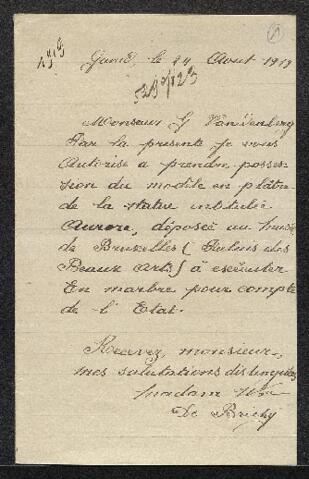 1
1919
Gand, le 24 Aout 1919
Monsieur G Vandenberg
Par la presente je vous
Autorise a prendre posses-
sion du modile en plâtre
de la statue intitulée
Aurore, déposée au musée
de Bruxelles (Palais des
Beaux Arts) à exécuter
En marbre pour compte
de l'Etat.
Recevez, monsieur,
mes salutations distinguées
madam
De